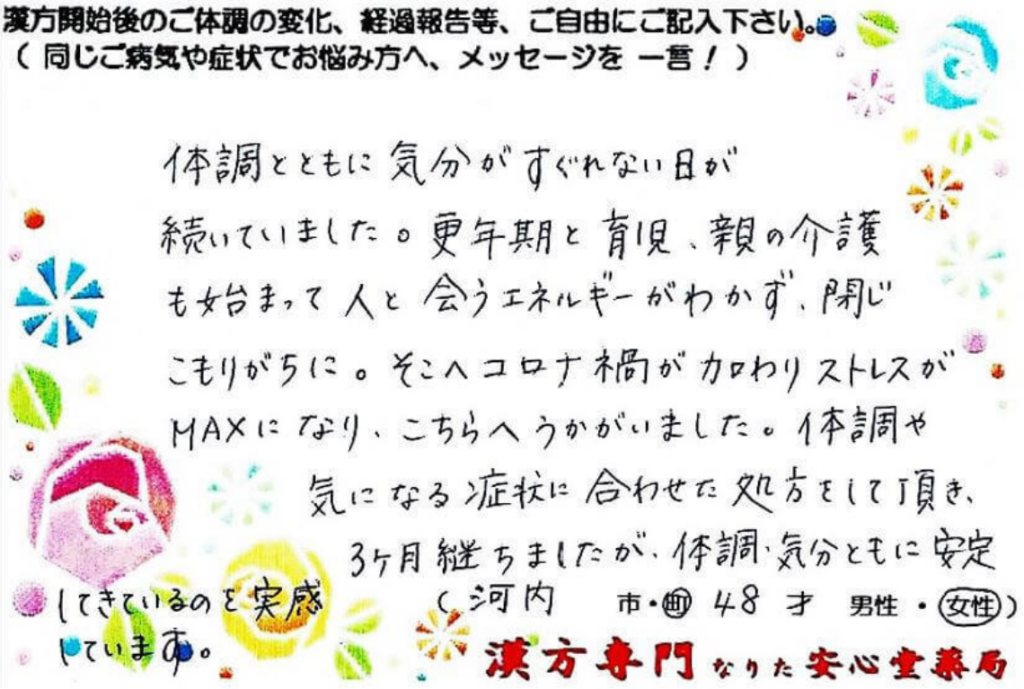 漢方開始後のご体調の変化、経過報告等、ご自由にご記入下さい。
（ 同じご病気や症状でお悩み方へ、メッセージを 一言！ ）
体調とともに気分がすぐれない日が
続いていました。更年期と育児、親の介護
も始まって人と会うエネルギーがわかず、閉じ
こもりがちに。そこへコロナ禍が加わりストレスが
MAXになり、こちらへうかがいました。体調や
気になる症状に合わせた処方をして頂き、
3ヶ月継ちましたが、体調・気分ともに安定
してきているのを実感
しています。
（ 河内 市・町 48 才 男性・女性）
漢方専門 なりた 安心堂薬局